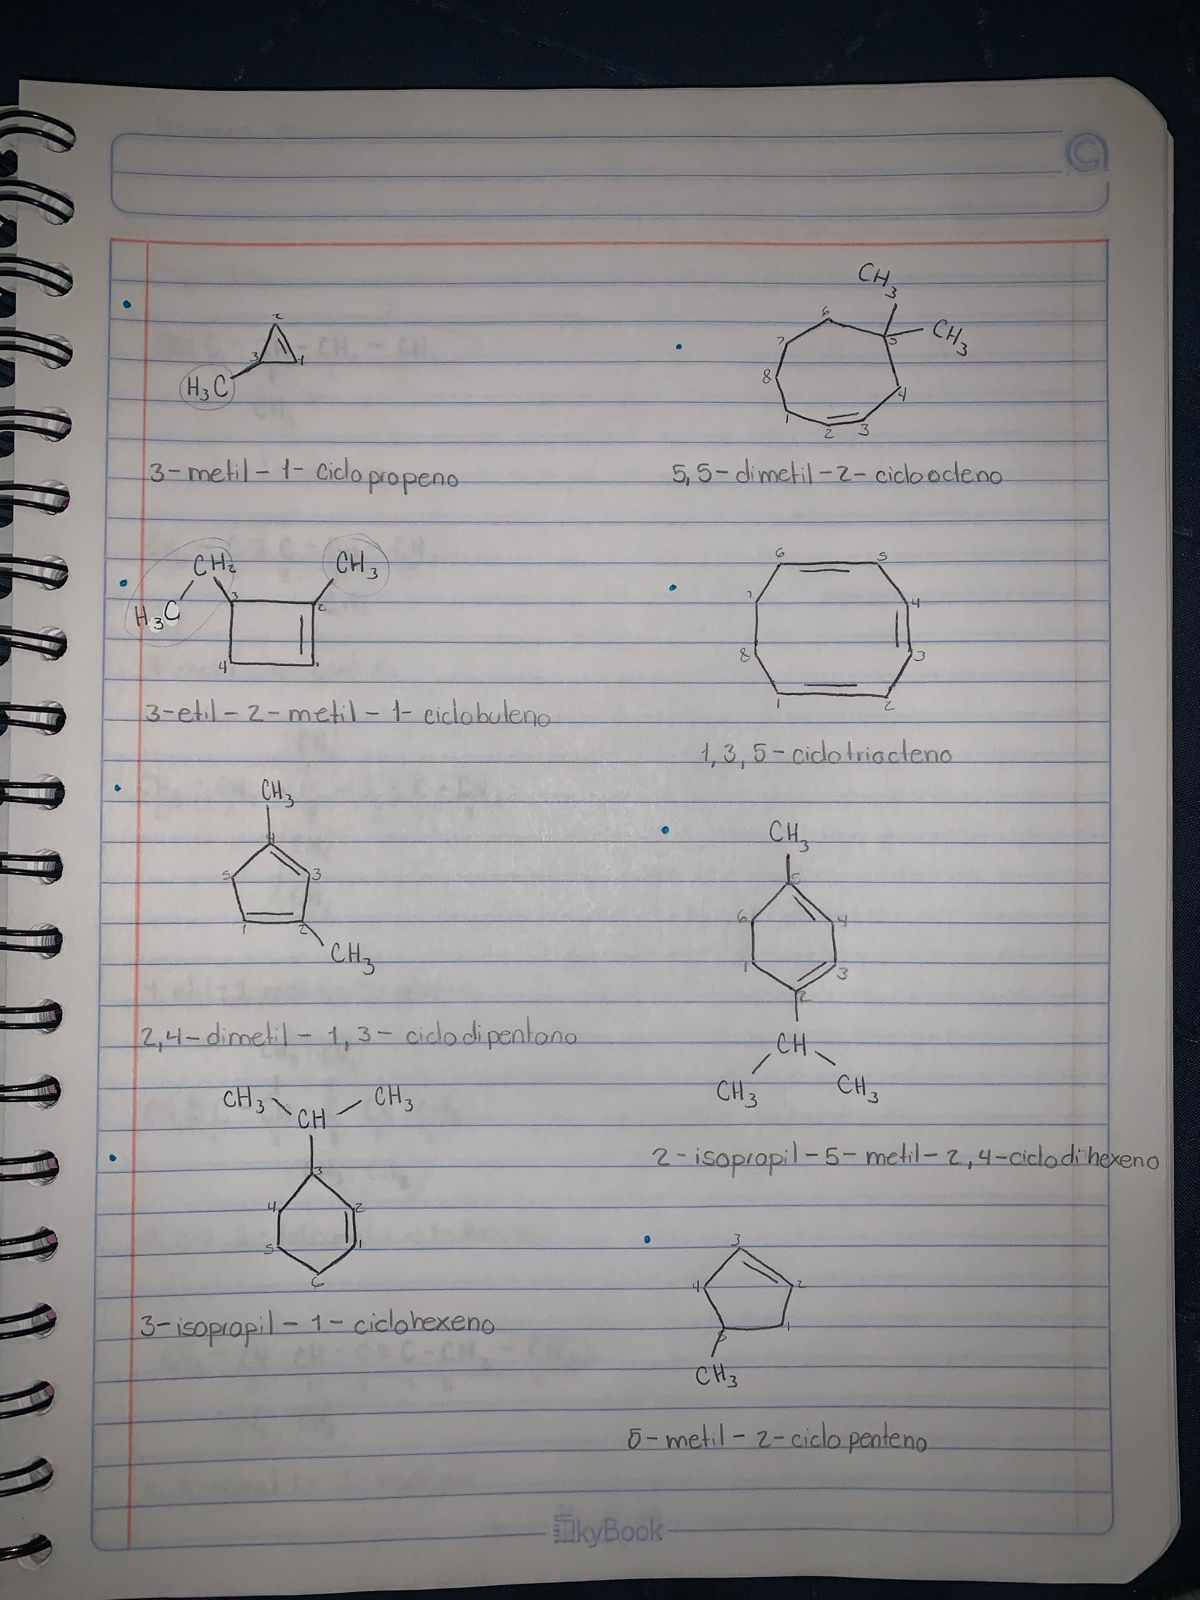 2
3 1
H3C
3-metil-1-ciclopropeno
CH2 CH3
H3C
3 2
4
3-etil-2-metil-1-ciclobuteno
CH3
4
5 3
1 2
CH3
2,4-dimetil-1,3-ciclodipentano
CH3 CH3
CH
3
4 2
5 1
6
3-isopropil-1-ciclohexeno
CH3
6
CH3
7 5
8
4
1 2 3
5,5-dimetil-2-cicloocteno
6 5
7 4
8 3
1 2
1,3,5-ciclotriocteno
CH3
5
6 4
1 3
2
CH
CH3 CH3
2-isopropil-5-metil-2,4-ciclodihexeno
3
4 2
5 1
CH3
5-metil-2-ciclopenteno
SkyBook